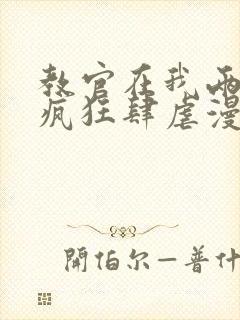 教官在我两
疯狂肆虐漫
開伯尔—普什